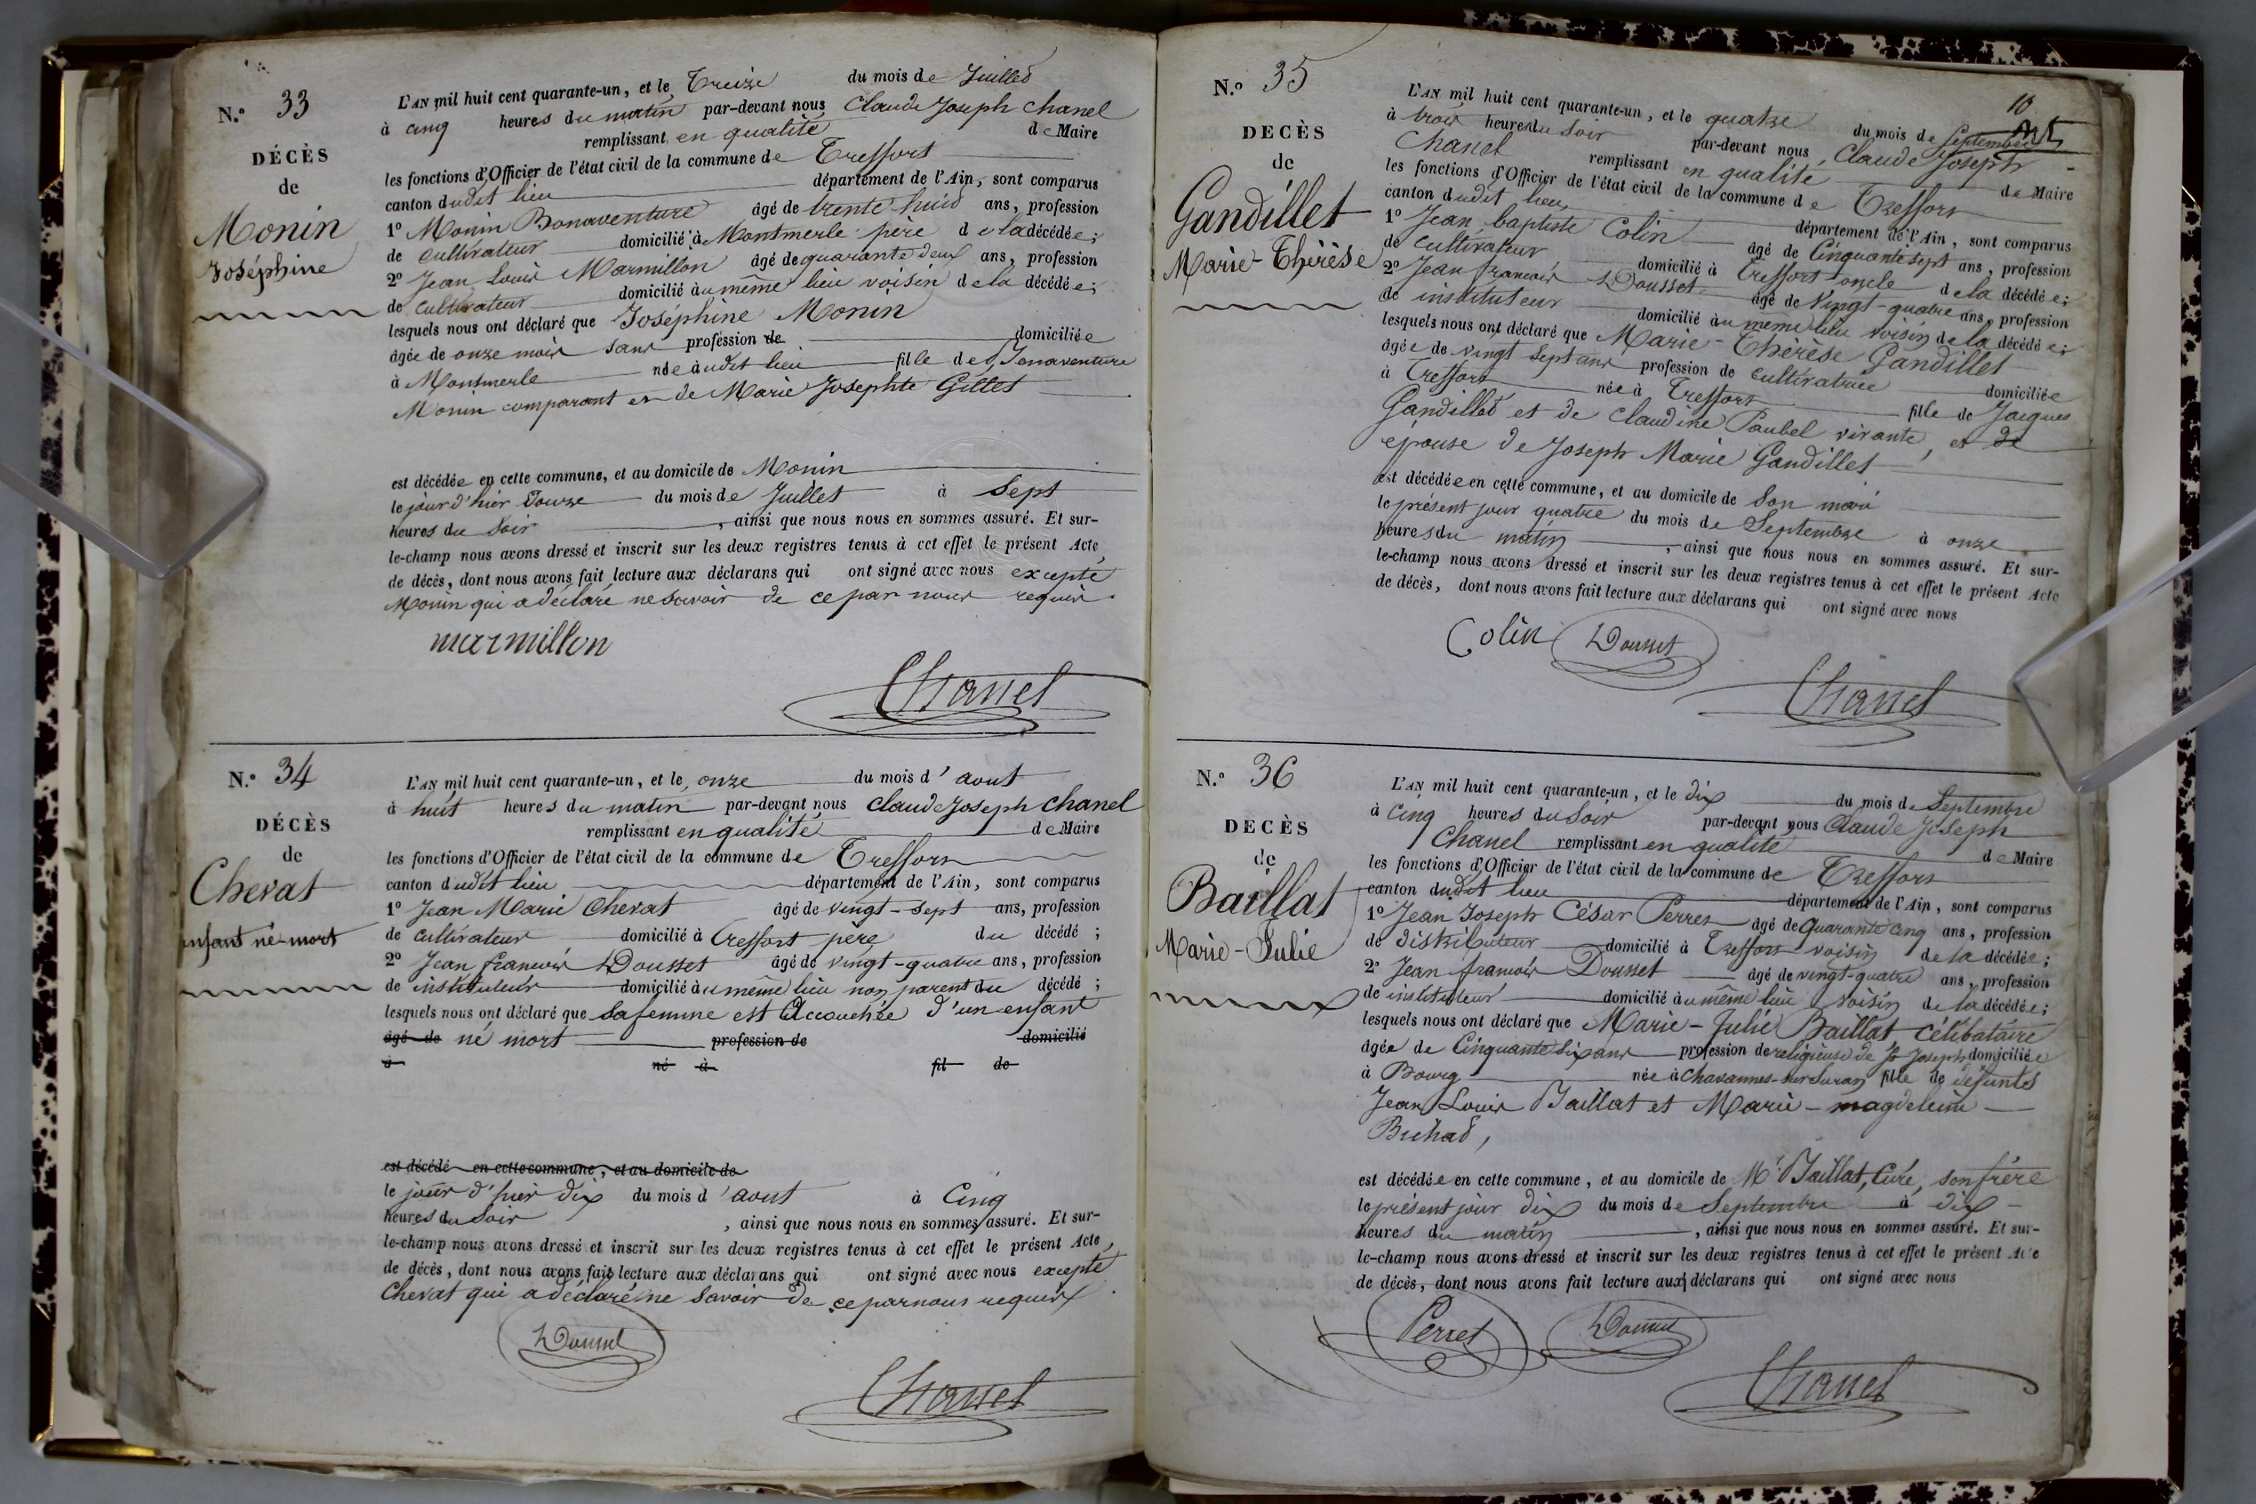 N.º 33
DÉCÈS
de
Monin
Joséphine
L'AN mil huit cent quarante-un, et le Treize du mois de Juillet
à cinq heures du matin par-devant nous Claude Joseph Chanel
remplissant en qualité de Maire
les fonctions d'Officier de l'état civil de la commune de Treffort
canton dudit lieu département de l'Ain, sont comparus
1º Monin Bonaventure âgé de trente huit ans, profession
de cultivateur domicilié à Montmerle père de la décédée;
2º Jean Louis Marmillon âgé de quarante deux ans, profession
de cultivateur domicilié au même lieu voisin de la décédée;
lesquels nous ont déclaré que Joséphine Monin
âgée de onze mois sans profession de domiciliée
à Montmerle née audit lieu fille de Bonaventure
Monin comparant et de Marie Josephte Gillet
est décédée en cette commune, et au domicile de Monin
le jour d'hier Douze du mois de Juillet à Sept
heures du Soir, ainsi que nous nous en sommes assuré. Et sur-
le-champ nous avons dressé et inscrit sur les deux registres tenus à cet effet le présent Acte,
de décès, dont nous avons fait lecture aux déclarans qui ont signé avec nous excepté
Monin qui a déclaré ne savoir de ce par nous requis.
marmillon
Chanel
N.º 34
DÉCÈS
de
Chevat
enfant né mort
L'AN mil huit cent quarante-un, et le onze du mois d'aout
à huit heures du matin par-devant nous Claude Joseph Chanel
remplissant en qualité de Maire
les fonctions d'Officier de l'état civil de la commune de Treffort
canton dudit lieu département de l'Ain, sont comparus
1º Jean Marie Chevat âgé de vingt-sept ans, profession
de cultivateur domicilié à Treffort père du décédé;
2º Jean francois Dousset âgé de vingt-quatre ans, profession
de instituteur domicilié au même lieu non parent du décédé;
lesquels nous ont déclaré que sa femme est Accouchée d'un enfant
âgé de né mort profession de domicilié
à né à fil de
est décédé en cette commune, et au domicile de
le jour d'hier dix du mois d'aout à Cinq
heures du Soir, ainsi que nous nous en sommes assuré. Et sur-
le-champ nous avons dressé et inscrit sur les deux registres tenus à cet effet le présent Acte,
de décès, dont nous avons fait lecture aux déclarans qui ont signé avec nous excepté
Chevat qui a déclaré ne savoir de ce par nous requis.
Dousset
Chanel
10
N.º 35
DECÈS
de
Gandillet
Marie-Thérèse
L'AN mil huit cent quarante-un, et le quatre du mois de Septembre
à trois heures du Soir par-devant nous Claude Joseph
Chanel remplissant en qualité de Maire
les fonctions d'Officier de l'état civil de la commune de Treffort
canton dudit lieu département de l'Ain, sont comparus
1º Jean baptiste Colin âgé de Cinquante sept ans, profession
de cultivateur domicilié à Treffort oncle de la décédée;
2º Jean francois Dousset âgé de Vingt-quatre ans, profession
de instituteur domicilié au même lieu voisin de la décédée;
lesquels nous ont déclaré que Marie-Thérèse Gandillet
âgée de vingt Sept ans profession de cultivatrice domiciliée
à Treffort née à Treffort fille de Jacques
Gandillet et de Claudine Paubel vivante, et de
épouse de Joseph Marie Gandillet
est décédée en cette commune, et au domicile de Son mari
le présent jour quatre du mois de Septembre à onze
heures du matin, ainsi que nous nous en sommes assuré. Et sur-
le-champ nous avons dressé et inscrit sur les deux registres tenus à cet effet le présent Acte
de décès, dont nous avons fait lecture aux déclarans qui ont signé avec nous
Colin Dousset
Chanel
N.º 36
DECÈS
de
Baillat
Marie-Julie
L'AN mil huit cent quarante-un, et le dix du mois de Septembre
à Cinq heures du Soir par-devant nous Claude Joseph
Chanel remplissant en qualité de Maire
les fonctions d'Officier de l'état civil de la commune de Treffort
canton dudit lieu département de l'Ain, sont comparus
1º Jean Joseph César Perret âgé de Quarante cinq ans, profession
de distributeur domicilié à Treffort voisin de la décédée;
2º Jean francois Dousset âgé de vingt-quatre ans, profession
de instituteur domicilié au même lieu voisin de la décédée;
lesquels nous ont déclaré que Marie-Julie Baillat célibataire
âgée de Cinquante six ans profession de religieuse de St Joseph domiciliée
à Bourg née à Chavannes-sur Suran fille de défunts
Jean Louis Baillat et Marie-magdeleine
Buchad,
est décédée en cette commune, et au domicile de Mr Baillat, Curé, son frère
le présent jour dix du mois de Septembre à dix
heures du matin, ainsi que nous nous en sommes assuré. Et sur-
le-champ nous avons dressé et inscrit sur les deux registres tenus à cet effet le présent Acte
de décès, dont nous avons fait lecture aux déclarans qui ont signé avec nous
Perret Dousset
Chanel